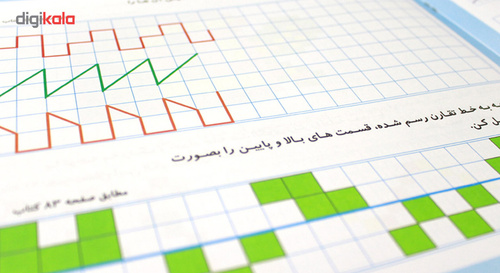 digikala
به خط تقارن رسم شده، قسمت های بالا و پایین را بصورت
کن.
مطابق صفحه ۸۳ کتاب